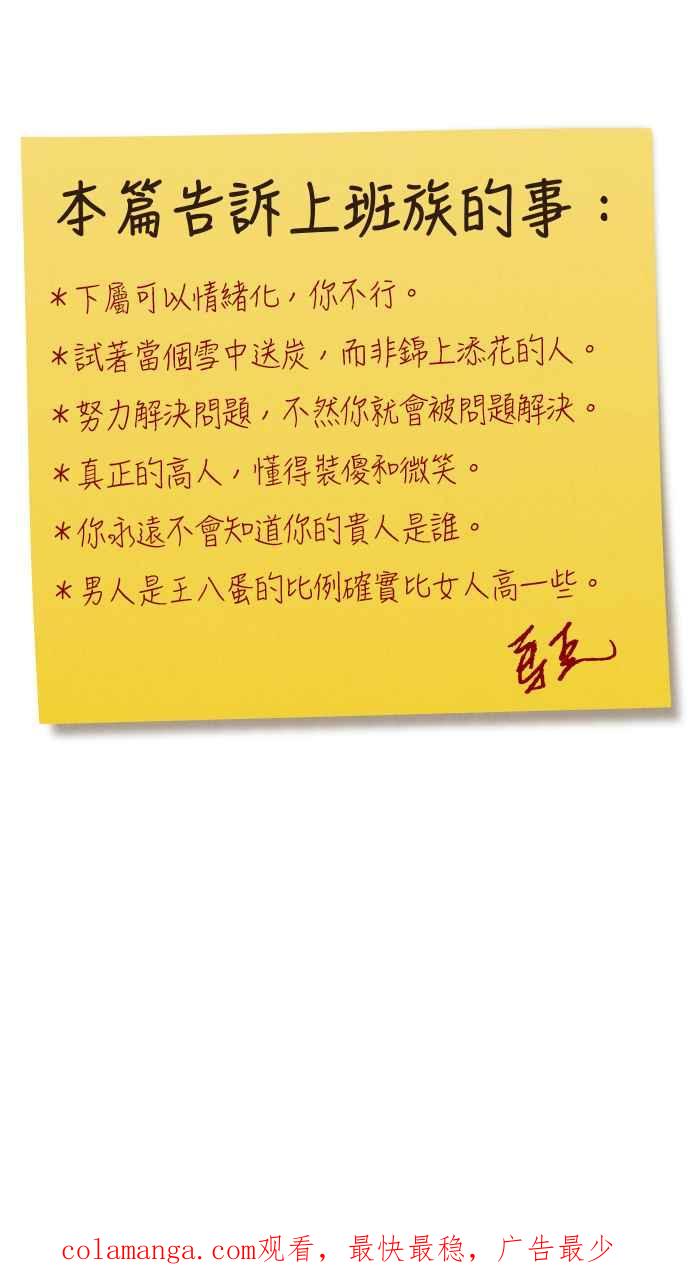 本篇告訴上班族的事：
＊下屬可以情緒化，你不行。
＊試著當個雪中送炭，而非錦上添花的人。
＊努力解決問題，不然你就會被問題解決。
＊真正的高人，懂得裝傻和微笑。
＊你永遠不會知道你的貴人是誰。
＊男人是王八蛋的比例確實比女人高一些。
colamanga.com观看，最快最稳，广告最少